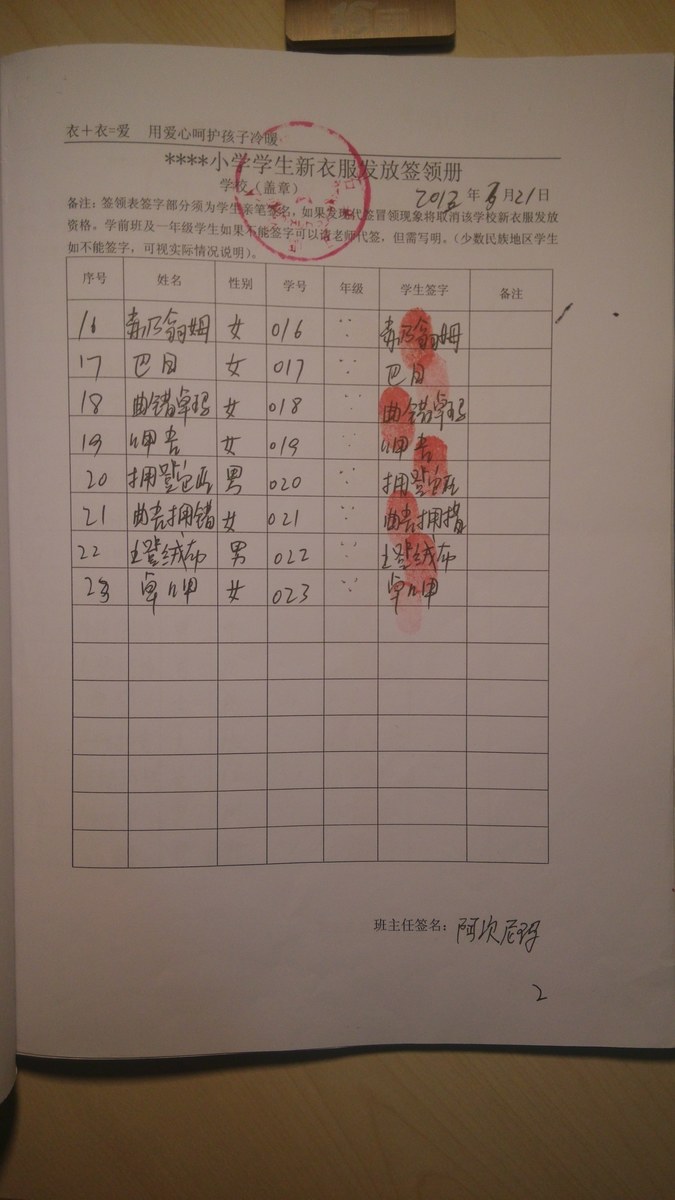 衣+衣=爱 用爱心呵护孩子冷暖
****小学学生新衣服发放签领册
学校（盖章） 2013年 月21日
备注：签领表签字部分须为学生亲笔签名，如果发现代签冒领现象将取消该学校新衣服发放
资格。学前班及一年级学生如果不能签字可以请老师代签，但需写明。（少数民族地区学生
如不能签字，可视实际情况说明）。
序号 姓名 性别 学号 年级 学生签字 备注
16 女 016
17 巴目 女 017 巴目
18 曲错卓玛 女 018 曲错卓玛
19 呷吉 女 019 呷吉
20 男 020
21 曲吉拥错 女 021 曲吉拥措
22 绒布 男 022 绒布
23 卓呷 女 023 卓呷
班主任签名：阿次尼玛
2